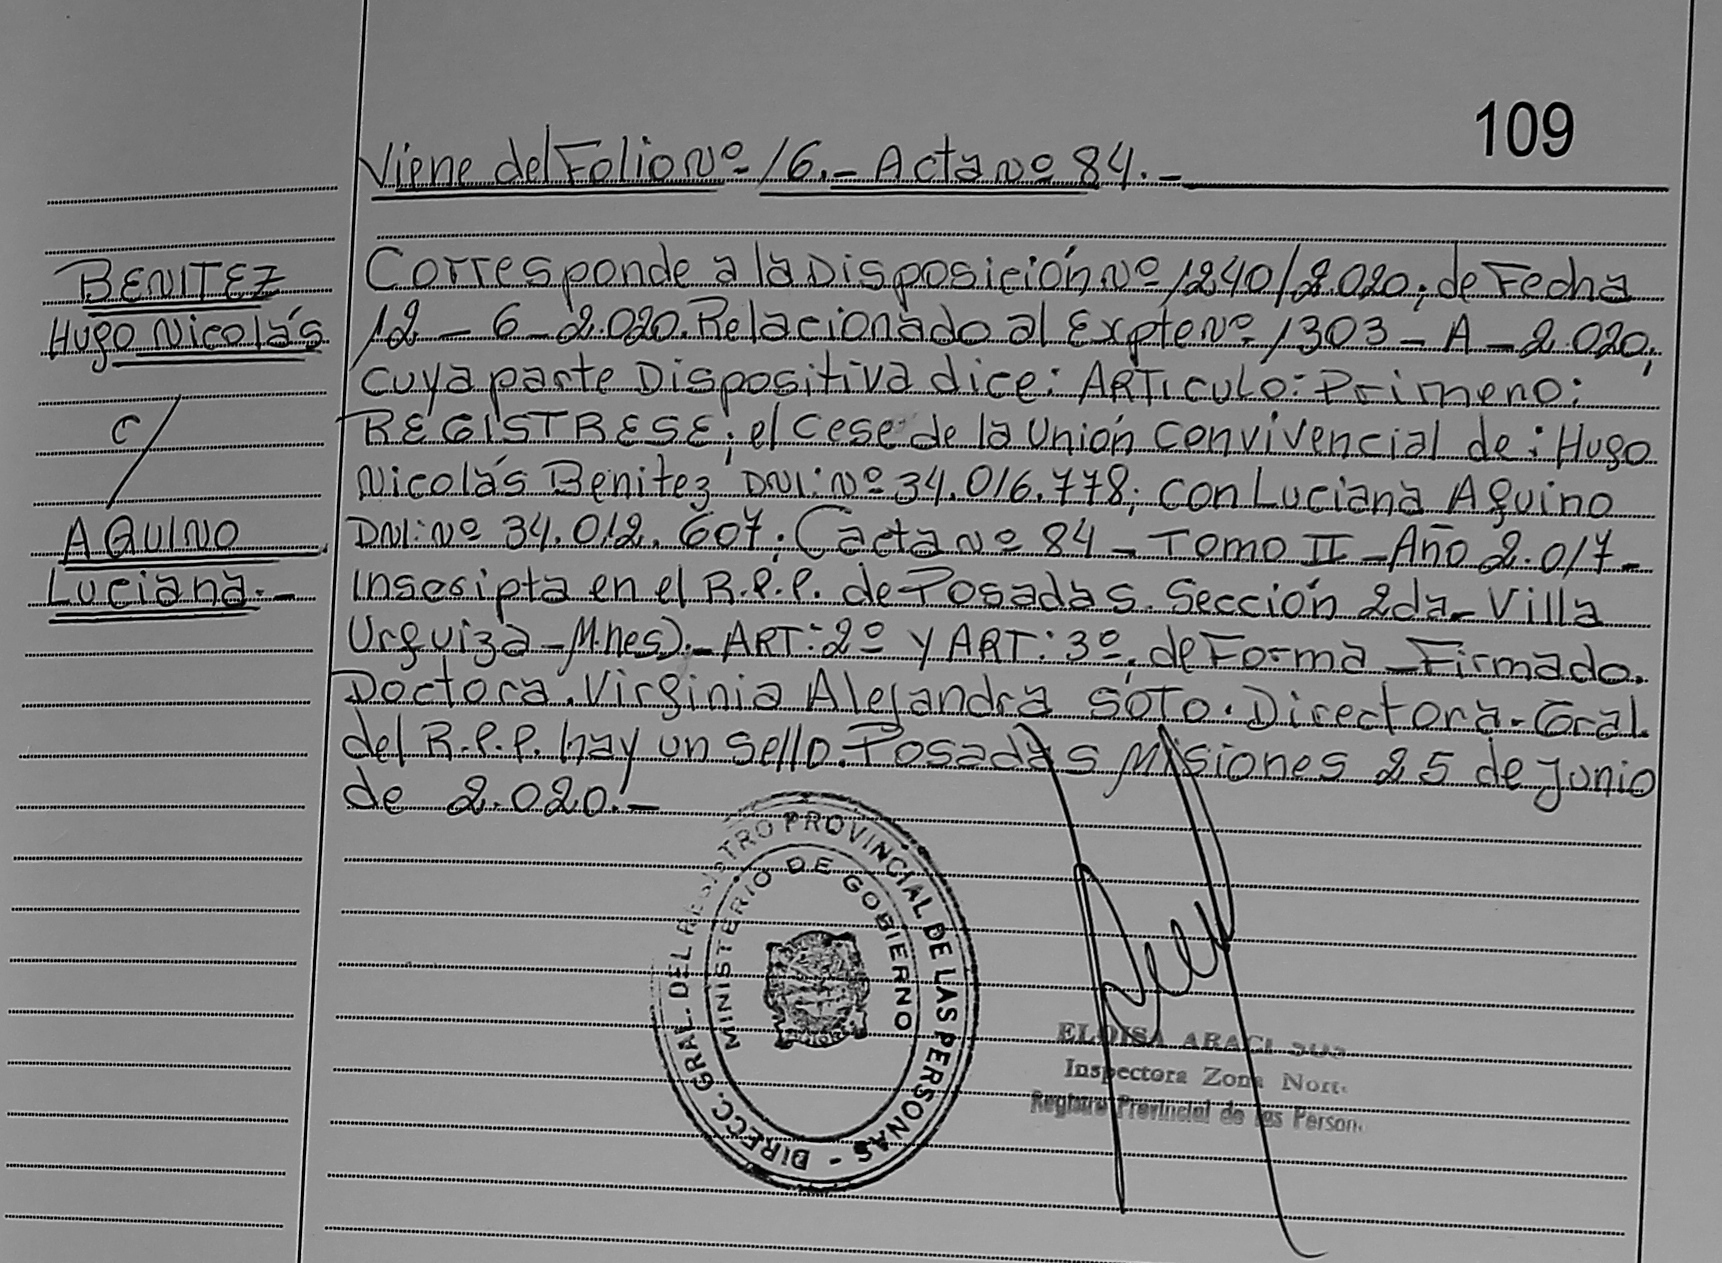 109
Viene del Folio Nº 16.- Acta Nº 84.-
BENITEZ
Hugo Nicolás
C/
AQUINO
Luciana.-
Corresponde a la Disposición Nº 1240/2.020, de Fecha
12-6-2.020. Relacionado al Expte Nº 1303-A-2.020,
cuya parte Dispositiva dice: ARTICULO: Primero:
REGISTRESE; el Cese de la Unión Convivencial de: Hugo
Nicolás Benitez DNI: Nº 34.016.778; con Luciana Aquino
DNI: Nº 34.012.607; (acta Nº 84 - Tomo II - Año 2.017-
Inscripta en el R.P.P. de Posadas. Sección 2da- Villa
Urquiza - M.nes).- ART: 2º y ART: 3º, de Forma - Firmado.
Doctora. Virginia Alejandra SOTO. Directora-Gral.
del R.P.P. hay un sello. Posadas Misiones 25 de junio
de 2.020.-
DIRECC. GRAL. DEL REGISTRO PROVINCIAL DE LAS PERSONAS -
MINISTERIO DE GOBIERNO
ELOISA ARACI
Inspectora Zona Norte
Registro Provincial de las Person.